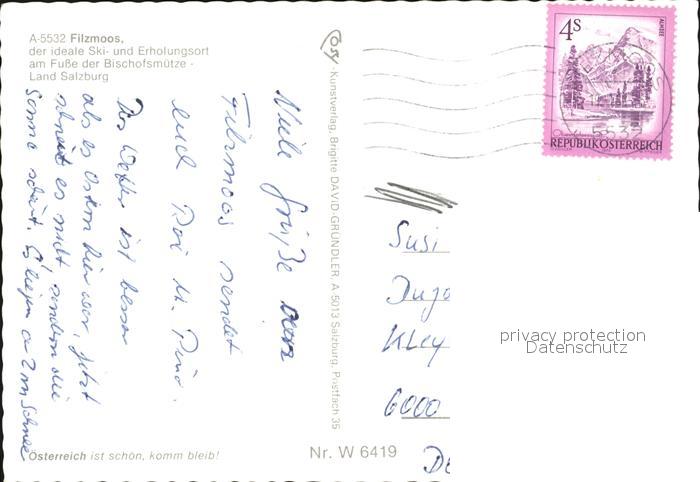 A-5532 Filzmoos,
der ideale Ski- und Erholungsort
am Fuße der Bischofsmütze -
Land Salzburg
Cosy - Kunstverlag, Brigitte DAVID-GRÜNDLER, A-5013 Salzburg, Postfach 35
4S
ALMSEE
REPUBLIK ÖSTERREICH
5532
Viele Grüße aus
Filzmoos sendet
euch
Das Wetter ist besser
als es Ostern hier war, jetzt
schneit es nicht, sondern die
Sonne scheint. Es liegen ca 2 m Schnee
Susi
6000
privacy protection
Datenschutz
Österreich ist schön, komm bleib!
Nr. W 6419